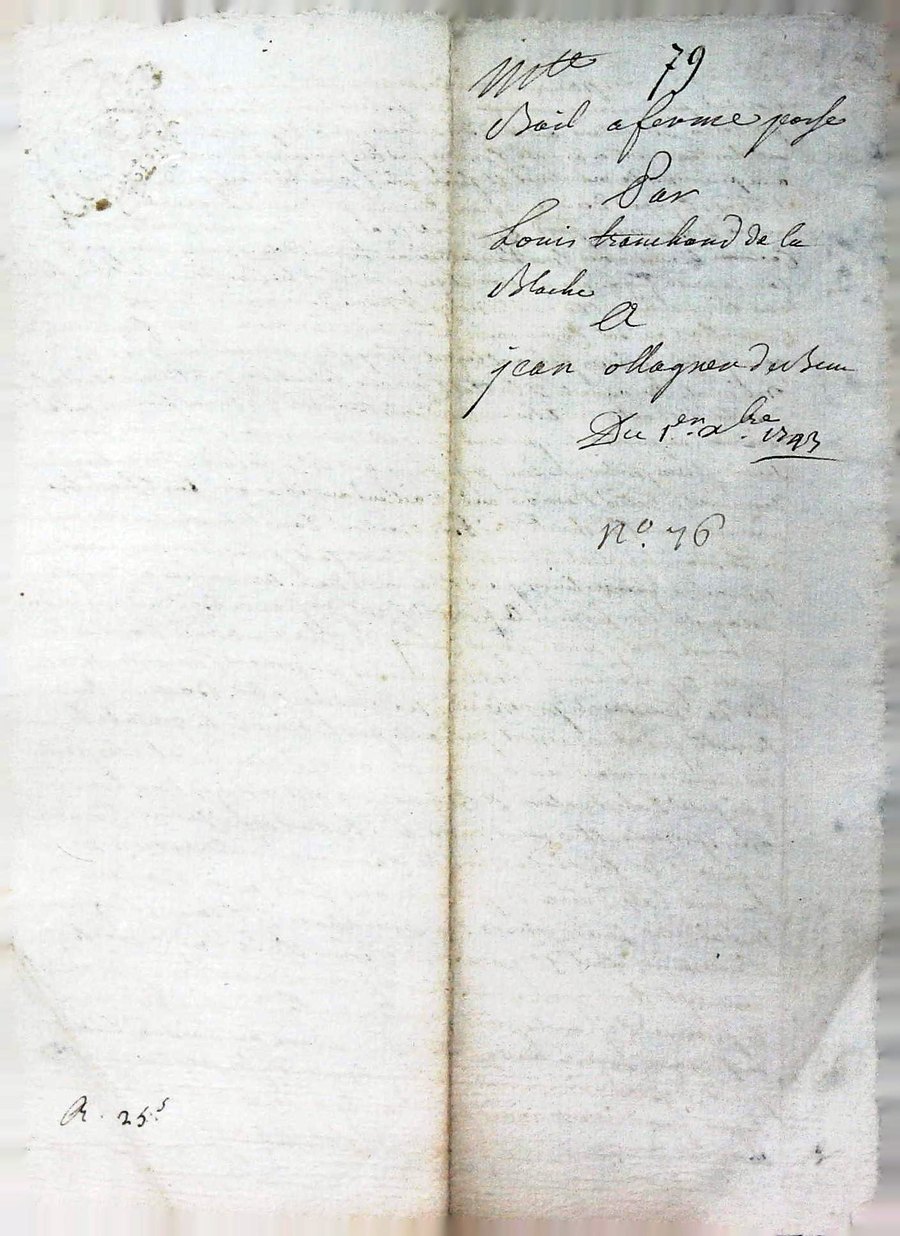 79
Bail a ferme passé
Par
Louis tranchand de la
Blache
A
jean ollagner du Beun
Du 1er xbre 1793
no. 76
R. 25 s